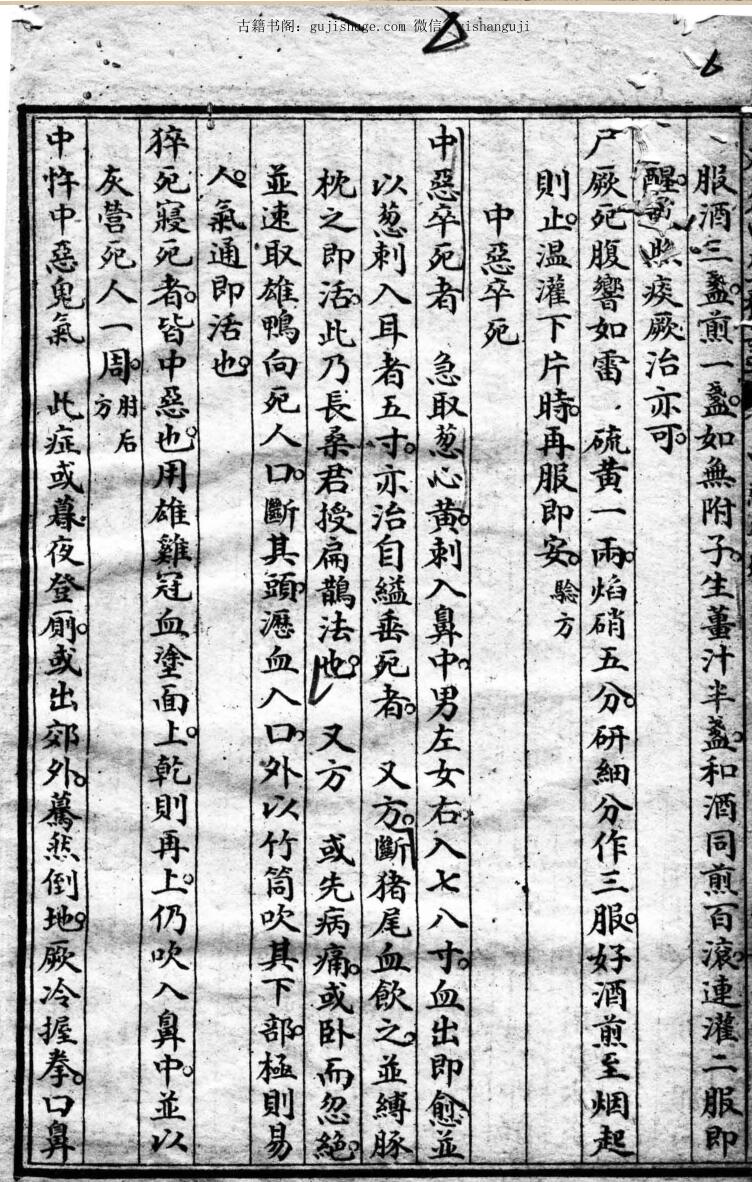 古籍书阁：gujishuge.com 微信：gishanguji
服酒三盞煎一盞如無附子生薑汁半盞和酒同煎百滚連灌二服即
醒 㷱痰厥治亦可
尸厥死腹響如雷 硫黃一兩焰硝五分研細分作三服好酒煎至烟起
則止温灌下片時再服即安 驗方
中惡卒死
中惡卒死者 急取葱心黃刺入鼻中男左女右入七八寸血出即愈並
以葱刺入耳者五寸亦治自縊垂死者 又方斷猪尾血飲之並縛豚
枕之即活此乃長桑君授扁鵲法也 又方 或先病痛或卧而忽絕
並速取雄鴨向死人口斷其頭瀝血入口外以竹筒吹其下部極則易
人氣通即活也
猝死寢死者皆中惡也用雄雞冠血塗面上乾則再上仍吹入鼻中並以
灰營死人一周 肘后方
中忤中惡鬼氣 此症或暮夜登厠或出郊外驀然倒地厥冷握拳口鼻